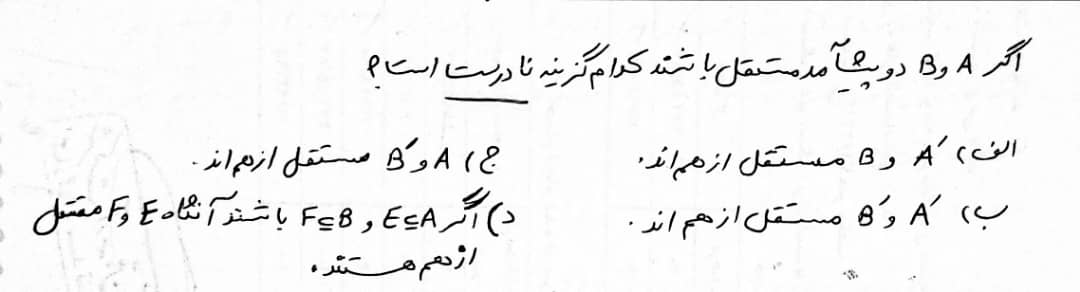 اگر A و B دو پیشآمد مستقل باشند کدام گزینه نادرست است؟
الف) A′ و B مستقل ازهم اند.
ج) A و B′ مستقل ازهم اند.
ب) A′ و B′ مستقل ازهم اند.
د) اگر E⊆A و F⊆B باشند آنگاه E و F مستقل
ازهم هستند.